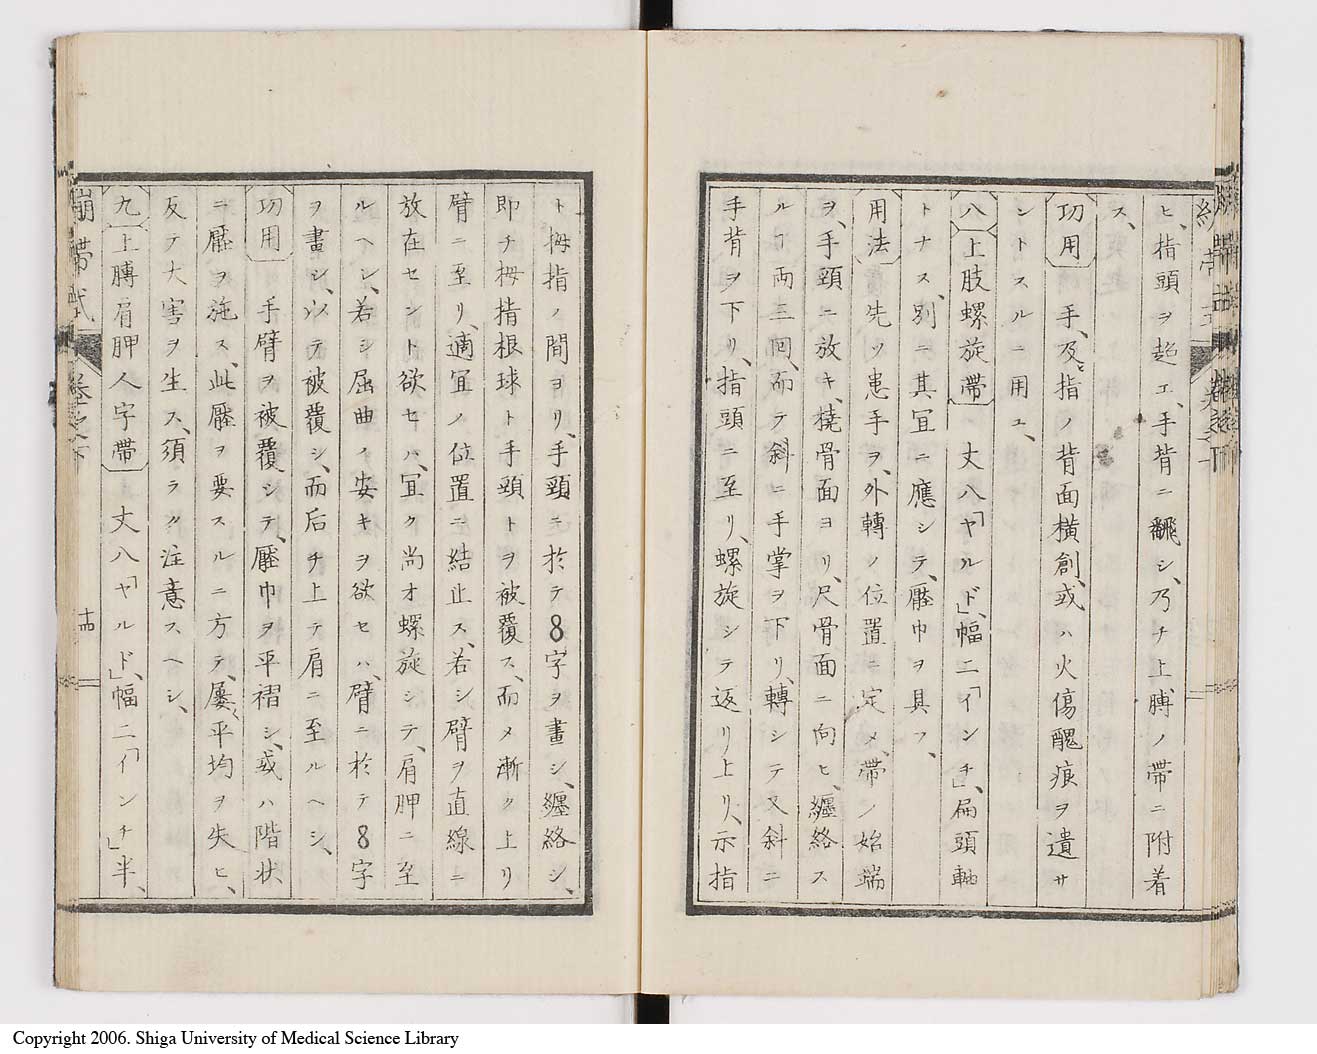 ヒ、指頭ヲ超エ、手背ニ飜シ、乃チ上膊ノ帶ニ附着
ス、
功用 手、及指ノ背面横創、或ハ火傷醜痕ヲ遺サ
ントスルニ用ユ、
八 上肢螺旋帶 丈八「ヤルド」、幅二「インチ」、扁頭軸
トナス、別ニ其冝ニ應シテ、壓巾ヲ具フ、
用法 先ツ患手ヲ、外轉ノ位置ニ定メ、帶ノ始端
ヲ、手頸ニ放キ、橈骨面ヨリ、尺骨面ニ向ヒ、纏絡ス
ルヿ両三回、而テ斜ニ手掌ヲ下リ、轉シテ又斜ニ
手背ヲ下リ、指頭ニ至リ、螺旋シテ返リ上リ、示指
ト拇指ノ間ヨリ、手頸ニ於テ8字ヲ畫シ、纏絡シ、
即チ拇指根球ト手頸トヲ被覆ス、而メ漸ク上リ
臂ニ至リ、適冝ノ位置ニ結止ス、若シ臂ヲ直線ニ
放在セント欲セハ、冝ク尚オ螺旋シテ、肩胛ニ至
ルヘシ、若シ屈曲ノ安キヲ欲セハ、臂ニ於テ8字
ヲ畫シ、以テ被覆シ、而后チ上テ肩ニ至ルヘシ、
功用 手臂ヲ被覆シテ、壓巾ヲ平褶シ、或ハ階状
ニ壓ヲ施ス、此壓ヲ要スルニ方テ、屡平均ヲ失ヒ、
反テ大害ヲ生ス、須ラク注意スヘシ、
九 上膊肩胛人字帶 丈八「ヤルド」、幅二「インチ」半、
繃帶式 卷之下 十四
Copyright 2006. Shiga University of Medical Science Library